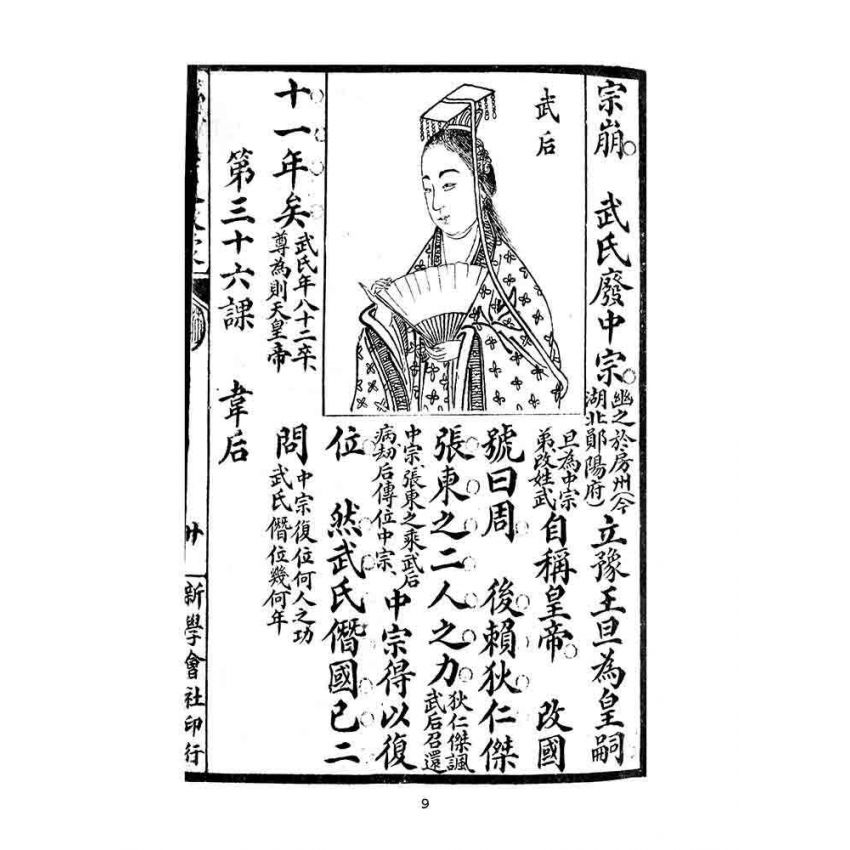 武后
宗崩 武氏廢中宗
幽之於房州(今
湖北鄖陽府)
立豫王旦為皇嗣
旦為中宗
弟改姓武
自稱皇帝 改國
號曰周 後賴狄仁傑
張東之二人之力
狄仁傑諷
武后召還
中宗、張東之乘武后
病、劫后傳位中宗、
中宗得以復
位 然武氏僭國已二
十一年矣
武氏年八十二卒、
尊為則天皇帝
問
中宗復位何人之功
武氏僭位幾何年
第三十六課 韋后
卄
新學會社印行
9